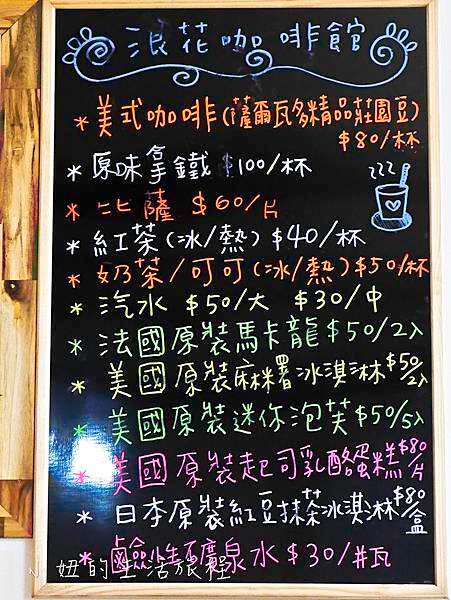 浪花咖啡館
*美式咖啡(薩爾瓦多精品莊園豆)
$80/杯
*原味拿鐵 $100/杯
*比薩 $60/片
*紅茶(冰/熱)$40/杯
*奶茶/可可(冰/熱)$50/杯
*汽水 $50/大 $30/中
*法國原裝馬卡龍$50/2入
*美國原裝麻糬冰淇淋$50/2入
*美國原裝迷你泡芙$50/5入
*美國原裝起司乳酪蛋糕$80/片
*日本原裝紅豆抹茶冰淇淋$80/盒
*鹼性 礦泉水$30/瓶
妞的生活旅程